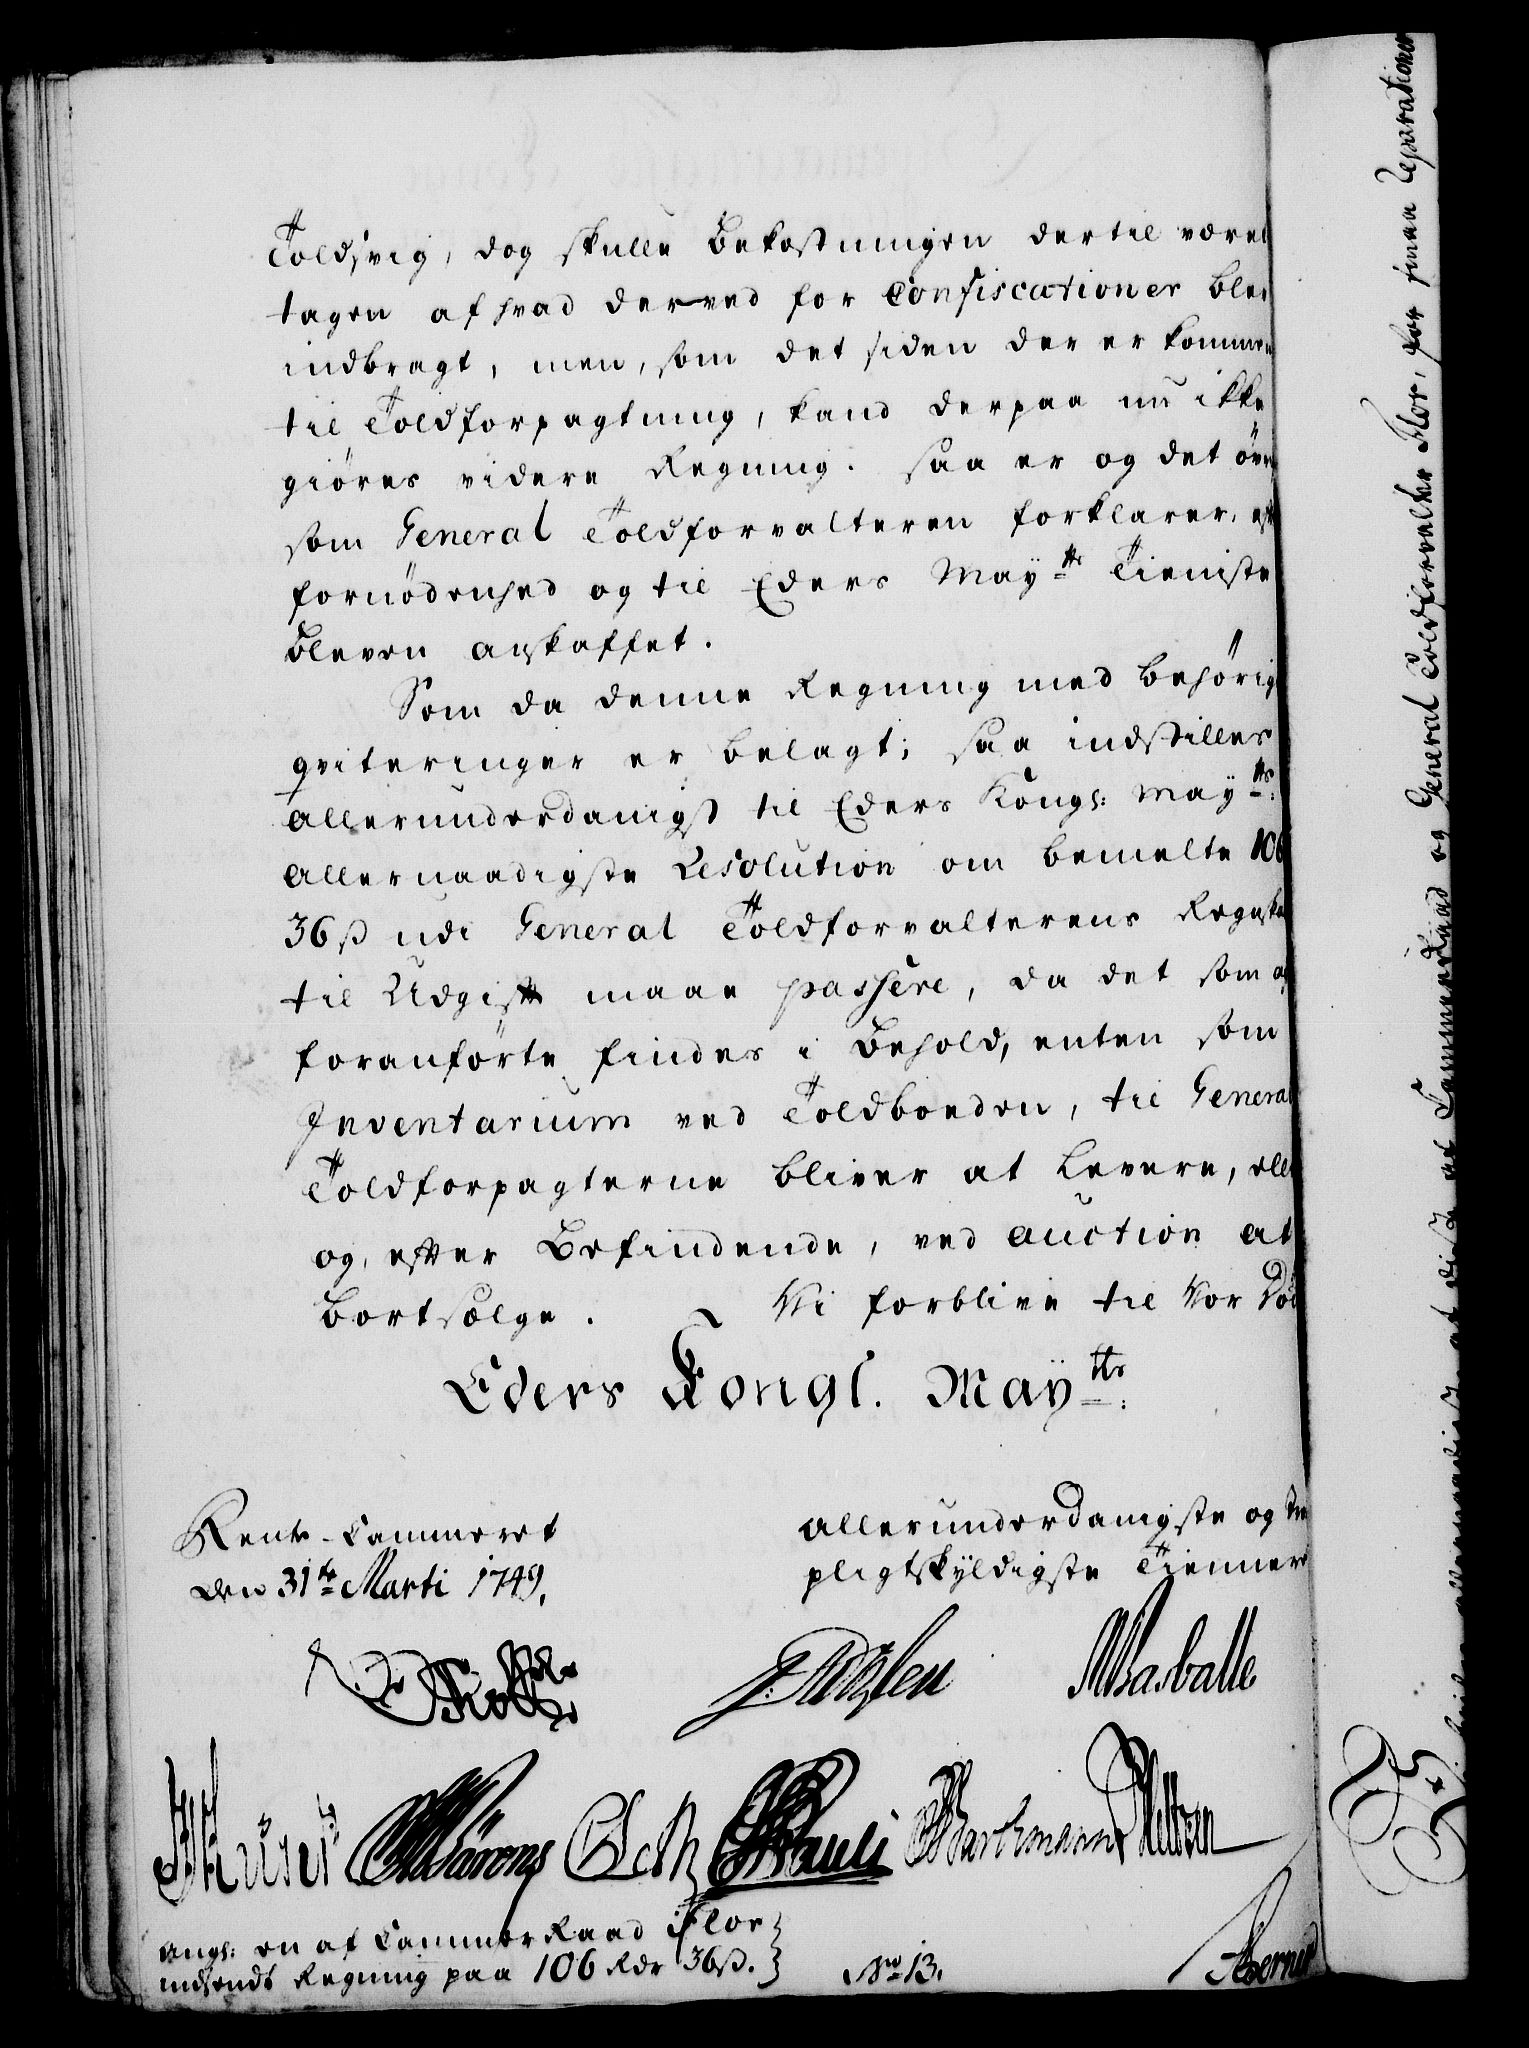 Toldsvig, dog skulle Bekostningen dertil været
tagen af hvad derved for Confiscationer blev
indbragt, men, som det siden der er kommen
til Toldforpagtning, kand derpaa nu ikke
giøres videre Regning. saa er og det
som General Toldforvalteren forklarer,
fornödenhed og til Eders Mayts Tieniste
bleven anskaffet.
Som da denne Regning med behörig
qviteringer er belagt; saa indstilles
allerunderdanigst til Eders Kongl: Mayts:
allernaadigste Resolution om bemelte 106
36 ß udi General Toldforvalterens Regnska
til Udgift maae passere, da det som af
foranförte findes i Behold, enten som
Inventarium ved Toldboeden, til General
Toldforpagterne bliver at Levere, elle
og, efter Befindende, ved auction at
bortsælge. Vi forblive til Vor Död
Eders Kongl. Mayts:
Rente-Cammeret
den 31te Marti 1749.
allerunderdanigste og
pligtskyldigste Tiennere
Rasballe
Pauli Barthmann
angl: en af Cammer Raad Flor
indsendt Regning paa 106 Rdr 36 ß.
No 13.
af Cammer Raad og General Toldforvalter Flor, for smaa Reparationer